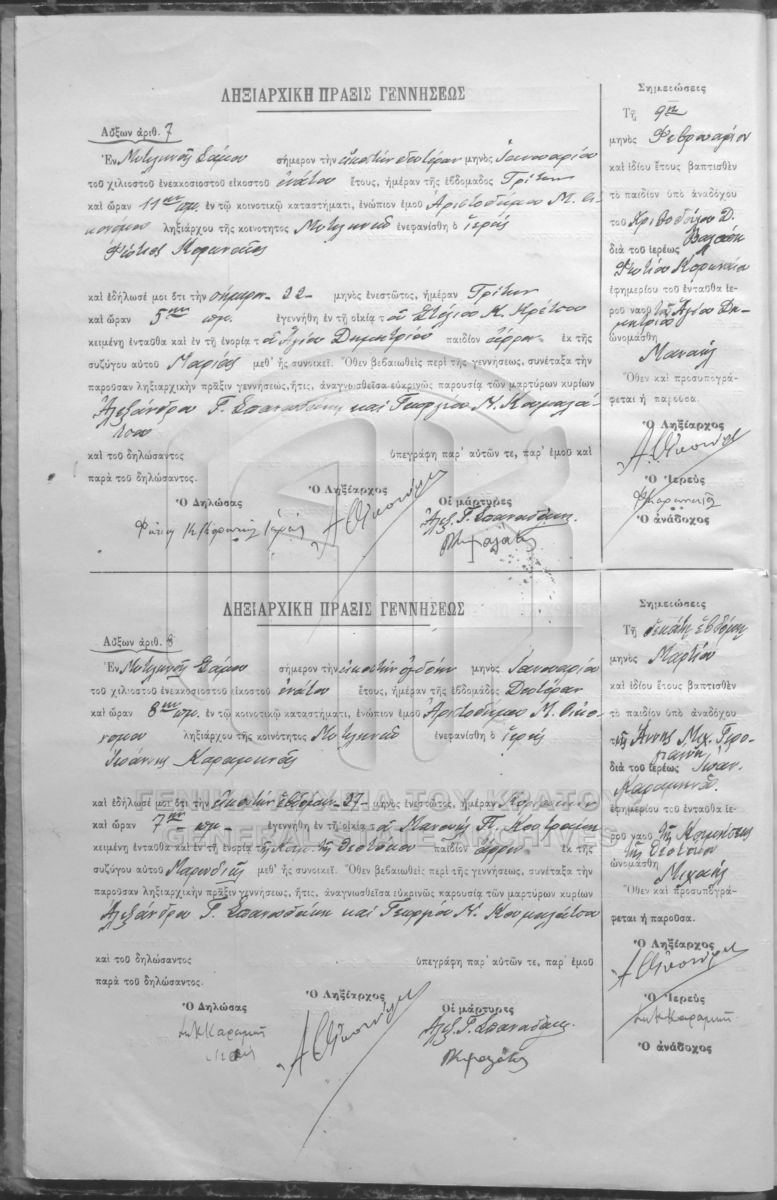 ΛΗΞΙΑΡΧΙΚΗ ΠΡΑΞΙΣ ΓΕΝΝΗΣΕΩΣ
Αὔξων ἀριθ. 7
Ἐν Μυτιληνῆς Σάμου σήμερον τὴν εἰκοστὴν δευτέραν μηνὸς Ἰανουαρίου
τοῦ χιλιοστοῦ ἐνεακοσιοστοῦ εἰκοστοῦ ἐνάτου ἔτους, ἡμέραν τῆς ἑβδομάδος Τρίτην
καὶ ὥραν 11ην πμ. ἐν τῷ κοινοτικῷ καταστήματι, ἐνώπιον ἐμοῦ Ἀριστοδήμου Μ. Οἰ-
κονόμου ληξιάρχου τῆς κοινότητος Μυτιληνιῶν ἐνεφανίσθη ὁ ἱερεὺς
Φώτιος
καὶ ἐδήλωσέ μοι ὅτι τὴν σήμερον 22 μηνὸς ἐνεστῶτος, ἡμέραν Τρίτην
καὶ ὥραν 5ην πμ. ἐγεννήθη ἐν τῇ οἰκίᾳ τοῦ Στέλιου Κ. Κρέτσου
κειμένῃ ἐνταῦθα καὶ ἐν τῇ ἐνορίᾳ τοῦ Ἁγίου Δημητρίου παιδίον ἄρρεν ἐκ τῆς
συζύγου αὐτοῦ Μαρίας μεθ᾽ ἧς συνοικεῖ. Ὅθεν βεβαιωθεὶς περὶ τῆς γεννήσεως, συνέταξα τὴν
παροῦσαν ληξιαρχικὴν πρᾶξιν γεννήσεως, ἥτις, ἀναγνωσθεῖσα εὐκρινῶς παρουσίᾳ τῶν μαρτύρων κυρίων
Ἀλεξάνδρου Γ. Σπανουδάκη καὶ Γεωργίου Ν.
καὶ τοῦ δηλώσαντος ὑπεγράφη παρ᾽ αὐτῶν τε, παρ᾽ ἐμοῦ καὶ
παρὰ τοῦ δηλώσαντος.
Ὁ Δηλώσας Ὁ Ληξίαρχος Οἱ μάρτυρες
Ἀλεξ. Γ. Σπανουδάκης
Σημειώσεις
Τῇ 9ῃ
μηνὸς Φεβρουαρίου
καὶ ἰδίου ἔτους βαπτισθὲν
τὸ παιδίον ὑπὸ ἀναδόχου
τοῦ Χριστοδούλου Δ.
διὰ τοῦ ἱερέως
Φωτίου
ἐφημερίου τοῦ ἐνταῦθα ἱε-
ροῦ ναοῦ τοῦ Ἁγίου Δη-
μητρίου
ὠνομάσθη
Μανωλῆς
Ὅθεν καὶ προσυπογρά-
φεται ἡ παροῦσα.
Ὁ Ληξίαρχος
Ὁ Ἱερεὺς
Ὁ ἀνάδοχος
ΛΗΞΙΑΡΧΙΚΗ ΠΡΑΞΙΣ ΓΕΝΝΗΣΕΩΣ
Αὔξων ἀριθ. 8
Ἐν Μυτιληνῆς Σάμου σήμερον τὴν εἰκοστὴν ὀγδόην μηνὸς Ἰανουαρίου
τοῦ χιλιοστοῦ ἐνεακοσιοστοῦ εἰκοστοῦ ἐνάτου ἔτους, ἡμέραν τῆς ἑβδομάδος Δευτέραν
καὶ ὥραν 8ην πμ. ἐν τῷ κοινοτικῷ καταστήματι, ἐνώπιον ἐμοῦ Ἀριστοδήμου Μ. Οἰκο-
νόμου ληξιάρχου τῆς κοινότητος Μυτιληνιῶν ἐνεφανίσθη ὁ ἱερεὺς
Ἰωάννης Καραμηνᾶς
καὶ ἐδήλωσέ μοι ὅτι τὴν εἰκοστὴν ἑβδόμην 27 μηνὸς ἐνεστῶτος, ἡμέραν Κυριακὴν
καὶ ὥραν 7ην πμ ἐγεννήθη ἐν τῇ οἰκίᾳ τοῦ Μανουὴλ Π.
κειμένῃ ἐνταῦθα καὶ ἐν τῇ ἐνορίᾳ τῆς Κοιμ. τῆς Θεοτόκου παιδίον ἄρρεν ἐκ τῆς
συζύγου αὐτοῦ μεθ᾽ ἧς συνοικεῖ. Ὅθεν βεβαιωθεὶς περὶ τῆς γεννήσεως, συνέταξα τὴν
παροῦσαν ληξιαρχικὴν πρᾶξιν γεννήσεως, ἥτις, ἀναγνωσθεῖσα εὐκρινῶς παρουσίᾳ τῶν μαρτύρων κυρίων
Ἀλεξάνδρου Γ. Σπανουδάκη καὶ Γεωργίου Ν.
καὶ τοῦ δηλώσαντος ὑπεγράφη παρ᾽ αὐτῶν τε, παρ᾽ ἐμοῦ
παρὰ τοῦ δηλώσαντος.
Ὁ Δηλώσας Ὁ Ληξίαρχος Οἱ μάρτυρες
Ἀλεξ. Γ. Σπανουδάκης
Σημειώσεις
Τῇ δεκάτῃ ἑβδόμῃ
μηνὸς Μαρτίου
καὶ ἰδίου ἔτους βαπτισθὲν
τὸ παιδίον ὑπὸ ἀναδόχου
τῆς Ἄννης Μιχ.
διὰ τοῦ ἱερέως Ἰωάν.
Καραμηνᾶ
ἐφημερίου τοῦ ἐνταῦθα ἱε-
ροῦ ναοῦ τῆς Κοιμήσεως
τῆς Θεοτόκου
ὠνομάσθη
Μιχαὴλ
Ὅθεν καὶ προσυπογρά-
φεται ἡ παροῦσα.
Ὁ Ληξίαρχος
Ὁ Ἱερεὺς
Ὁ ἀνάδοχος
ΓΕΝΙΚΑ ΑΡΧΕΙΑ ΤΟΥ ΚΡΑΤΟΥΣ
GENERAL STATE ARCHIVES